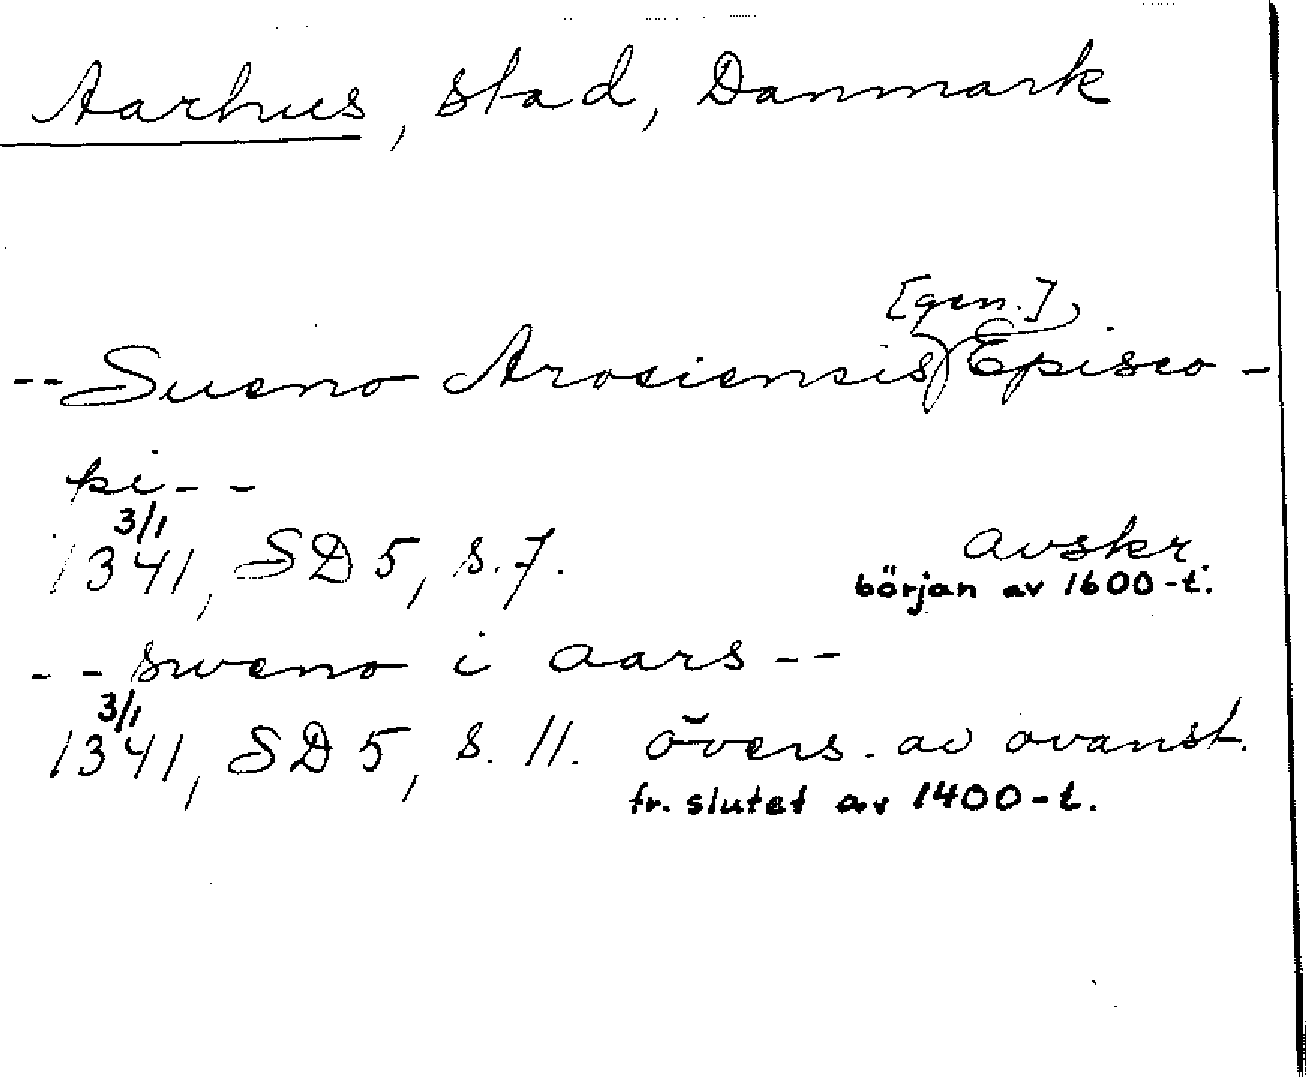 Aarhus, stad, Danmark
[gen.]
-- Sueno Arosiensis Episco-
pi --
3/1
1341, SD 5, s. 7.
avskr.
början av 1600-t.
-- sweno i aars --
3/1
1341, SD 5, s. 11. övers. av ovanst.
fr. slutet av 1400-t.